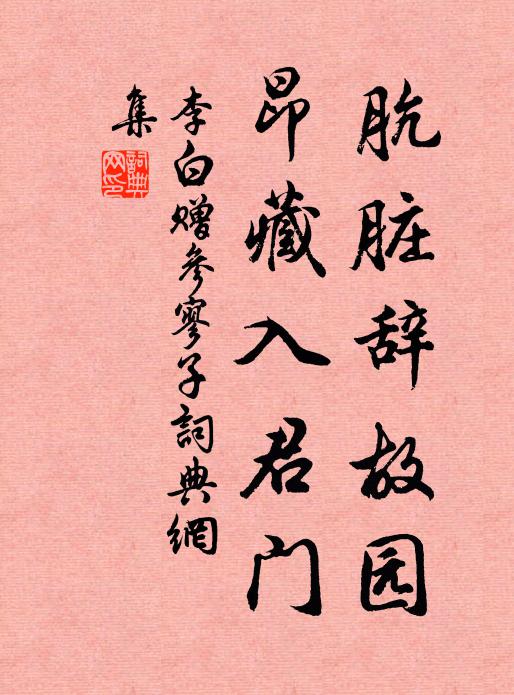 肮脏辞故园
昂藏入君门
李白赠参寥子詞典網
集
詞典
网印